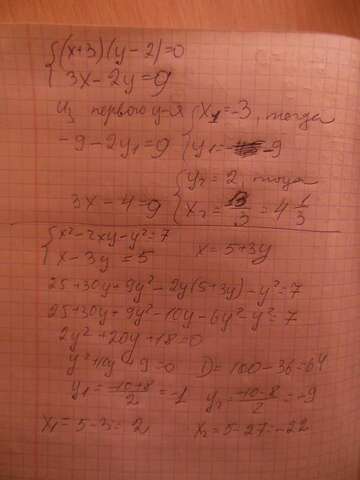 {(x+3)(y-2)=0
{3x-2y=9
Из первого ур-я {x₁=-3, тогда
-9-2y₁=9 {y₁=-9
{y₂=2, тогда
3x-4=9 {x₂=13/3=4 1/3
{x²-2xy-y²=7
{x-3y=5 x=5+3y
25+30y+9y²-2y(5+3y)-y²=7
25+30y+9y²-10y-6y²-y²=7
2y²+20y+18=0
y²+10y+9=0 D=100-36=64
y₁=(-10+8)/2=-1 y₂=(-10-8)/2=-9
x₁=5-3=2 x₂=5-27=-22